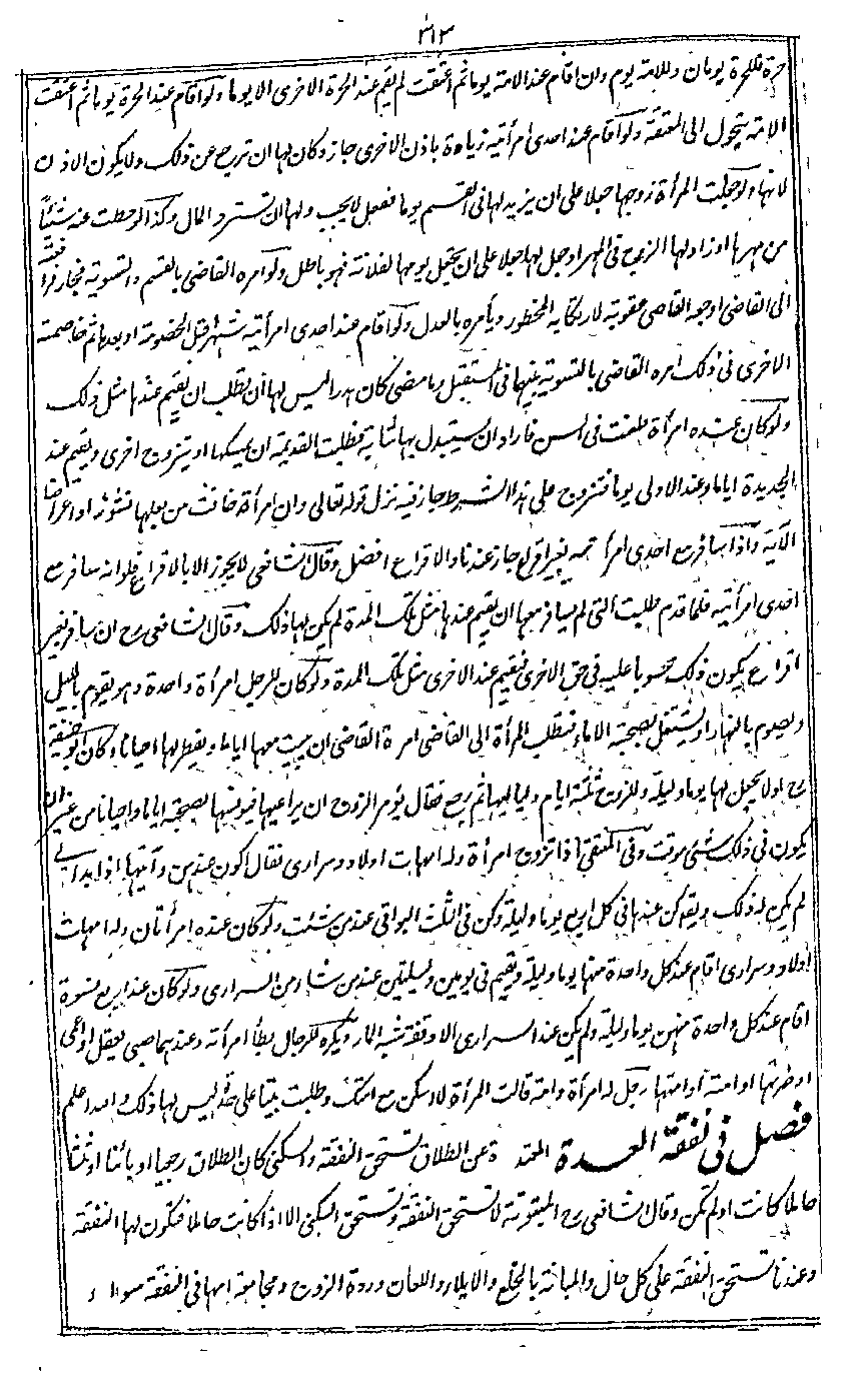 ٣١٣
حرة فللحرة يومان وللامة يوم وان اقام عند الامة يوما ثم اعتقت لم يقم عند الحرة الاخرى الا يوما ولو اقام عند الحرة يوما ثم اعتقت
الامة يتحول الى المعتقة ولو اقام عند احدى امرأتيه زيادة باذن الاخرى جاز وكان لها ان ترجع عن ذلك ولا يكون الاذن
لازما ولو جعلت المرأة لزوجها جعلا على ان يزيد لها فى القسم يوما ففعل لا يجب ولها ان تسترد المال وكذا لو حطت عنه شيئا
من مهرها او زاد لها الزوج فى المهر او جعل لها جعلا على ان تجعل يومها لفلانة فهو باطل ولو امره القاضى بالقسم والتسوية فجار فرافعته
الى القاضى اوجعه القاضى عقوبة لارتكابه المحظور ويأمره بالعدل ولو اقام عند احدى امرأتيه شهرا قبل الخصومة او بعدها ثم خاصمته
الاخرى فى ذلك امره القاضى بالتسوية بينهما فى المستقبل وما مضى كان هدرا ليس لها ان تطلب ان يقيم عندها مثل ذلك
ولو كان عنده امرأة طعنت فى السن فاراد ان يستبدل بها شابة فطلبت القديمة ان يمسكها او يتزوج اخرى ويقيم عند
الجديدة اياما وعند الاولى يوما فتزوج على هذا الشرط جاز فيه نزل قوله تعالى وان امرأة خافت من بعلها نشوزا او اعراضا
الآية واذا سافر مع احدى امرأتيه بغير اقراع جاز عندنا والاقراع افضل وقال الشافعى لا يجوز الا بالاقراع فلو انه سافر مع
احدى امرأتيه فلما قدم طلبت التى لم يسافر معها ان يقيم عندها مثل تلك المدة لم يكن لها ذلك وقال الشافعى رح ان سافر بغير
اقراع يكون ذلك محسوبا عليه فى حق الاخرى فيقيم عند الاخرى مثل تلك المدة ولو كان للرجل امرأة واحدة وهو يقوم بالليل
ويصوم بالنهار او يشتغل بصحبة الاماء فتطلب المرأة الى القاضى امره القاضى ان يبيت معها اياما ويفطر لها احيانا وكان ابو حنيفة
رح اولا يجعل لها يوما وليلة وللزوج ثلثة ايام ولياليها ثم رجع فقال يؤمر الزوج ان يراعيها فيونسها بصحبته اياما واحيانا من غير ان
يكون فى ذلك شئ موقت وفى المنتقى اذا تزوج امرأة وله امهات اولاد وسرارى فقال اكون عندهن وآتيها اذا بدا لى
لم يكن له ذلك ويقال كن عندها فى كل اربع يوما وليلة وكن فى الثلث البواقى عند من شئت ولو كان عنده امرأتان وله امهات
اولاد وسرارى اقام عند كل واحدة منهما يوما وليلة ويقيم فى يومين وليلتين عند من شاء من السرارى ولو كان عنده اربع نسوة
اقام عند كل واحدة منهن يوما وليلة ولم يكن عند السرارى الا وقفة شبه المار ويكره للرجال يطأ امرأته وعندهما صبى يعقل او اعمى
او ضرتها او امته او امتها رجل له امرأة وامة قالت المرأة لا اسكن مع امتك وطلبت بيتا على حدة ليس لها ذلك والله اعلم
فصل فى نفقة العدة المعتدة عن الطلاق تستحق النفقة والسكنى كان الطلاق رجعيا او بائنا او ثلثا
حاملا كانت او لم تكن وقال الشافعى رح المبتوتة لا تستحق النفقة وتستحق السكنى الا اذا كانت حاملا فتكون لها النفقة
وعندنا تستحق النفقة على كل حال والمبانة بالخلع والايلاء واللعان وردة الزوج ومجامعة امها فى النفقة سواء